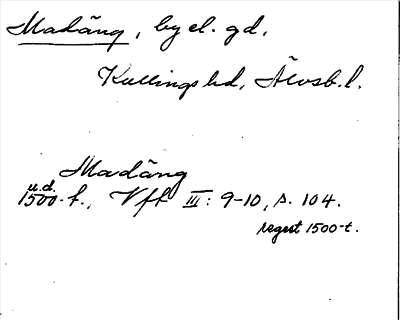 Madäng, by el. gd.
Kullings hd, Älvsb. l.
Madäng
u.d.
1500-t., Vft III: 9-10, s. 104.
regest 1500-t.